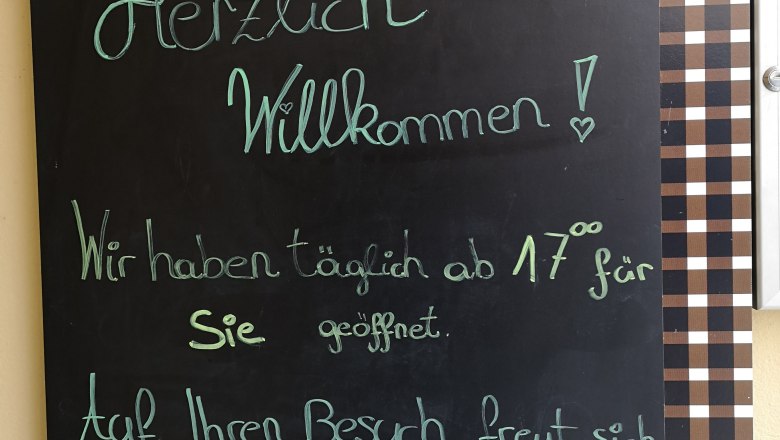 Herzlich
Willkommen!
Wir haben täglich ab 17⁰⁰ für
Sie geöffnet.
Auf Ihren Besuch freut sich